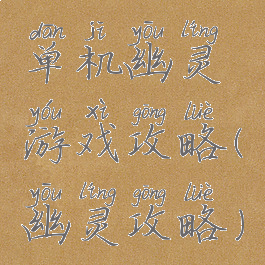 dān jī yōu líng
单机幽灵
yóu xì gōng lüè
游戏攻略(
yōu líng gōng lüè
幽灵攻略)